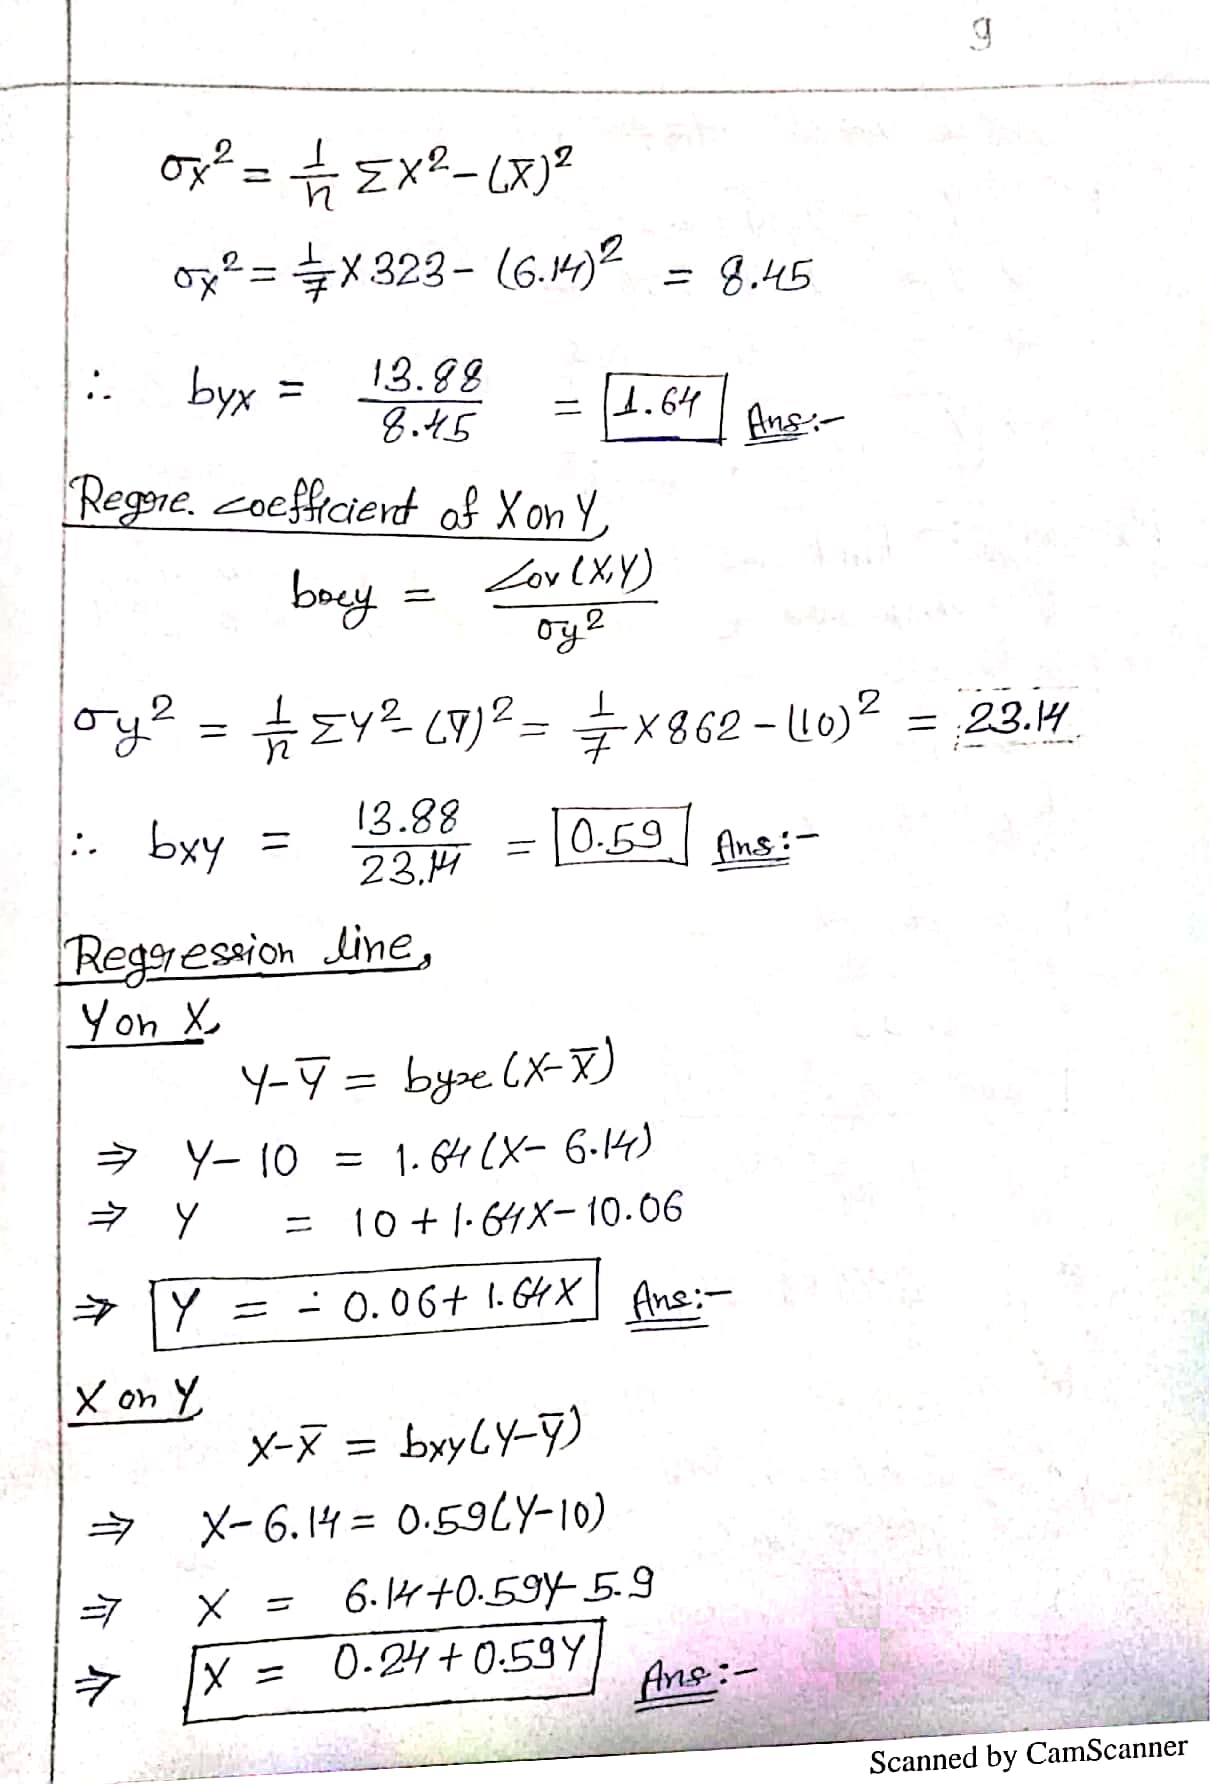 9
σx² = 1/n ΣX² - (X̅)²
σx² = 1/7 X 323 - (6.14)² = 8.45
∴ byx = 13.88/8.45 = 1.64 Ans:-
Regre. coefficient of X on Y,
bxy = Cov (X,Y)/σy²
σy² = 1/n ΣY² - (Y̅)² = 1/7 X 862 - (10)² = 23.14
∴ bxy = 13.88/23.14 = 0.59 Ans:-
Regression line,
Y on X,
Y-Y̅ = byx (X-X̅)
⇒ Y-10 = 1.64 (X- 6.14)
⇒ Y = 10 + 1.64X - 10.06
⇒ Y = - 0.06 + 1.64X Ans:-
X on Y,
X-X̅ = bxy (Y-Y̅)
⇒ X- 6.14 = 0.59 (Y-10)
⇒ X = 6.14 + 0.59Y - 5.9
⇒ X = 0.24 + 0.59Y Ans:-
Scanned by CamScanner